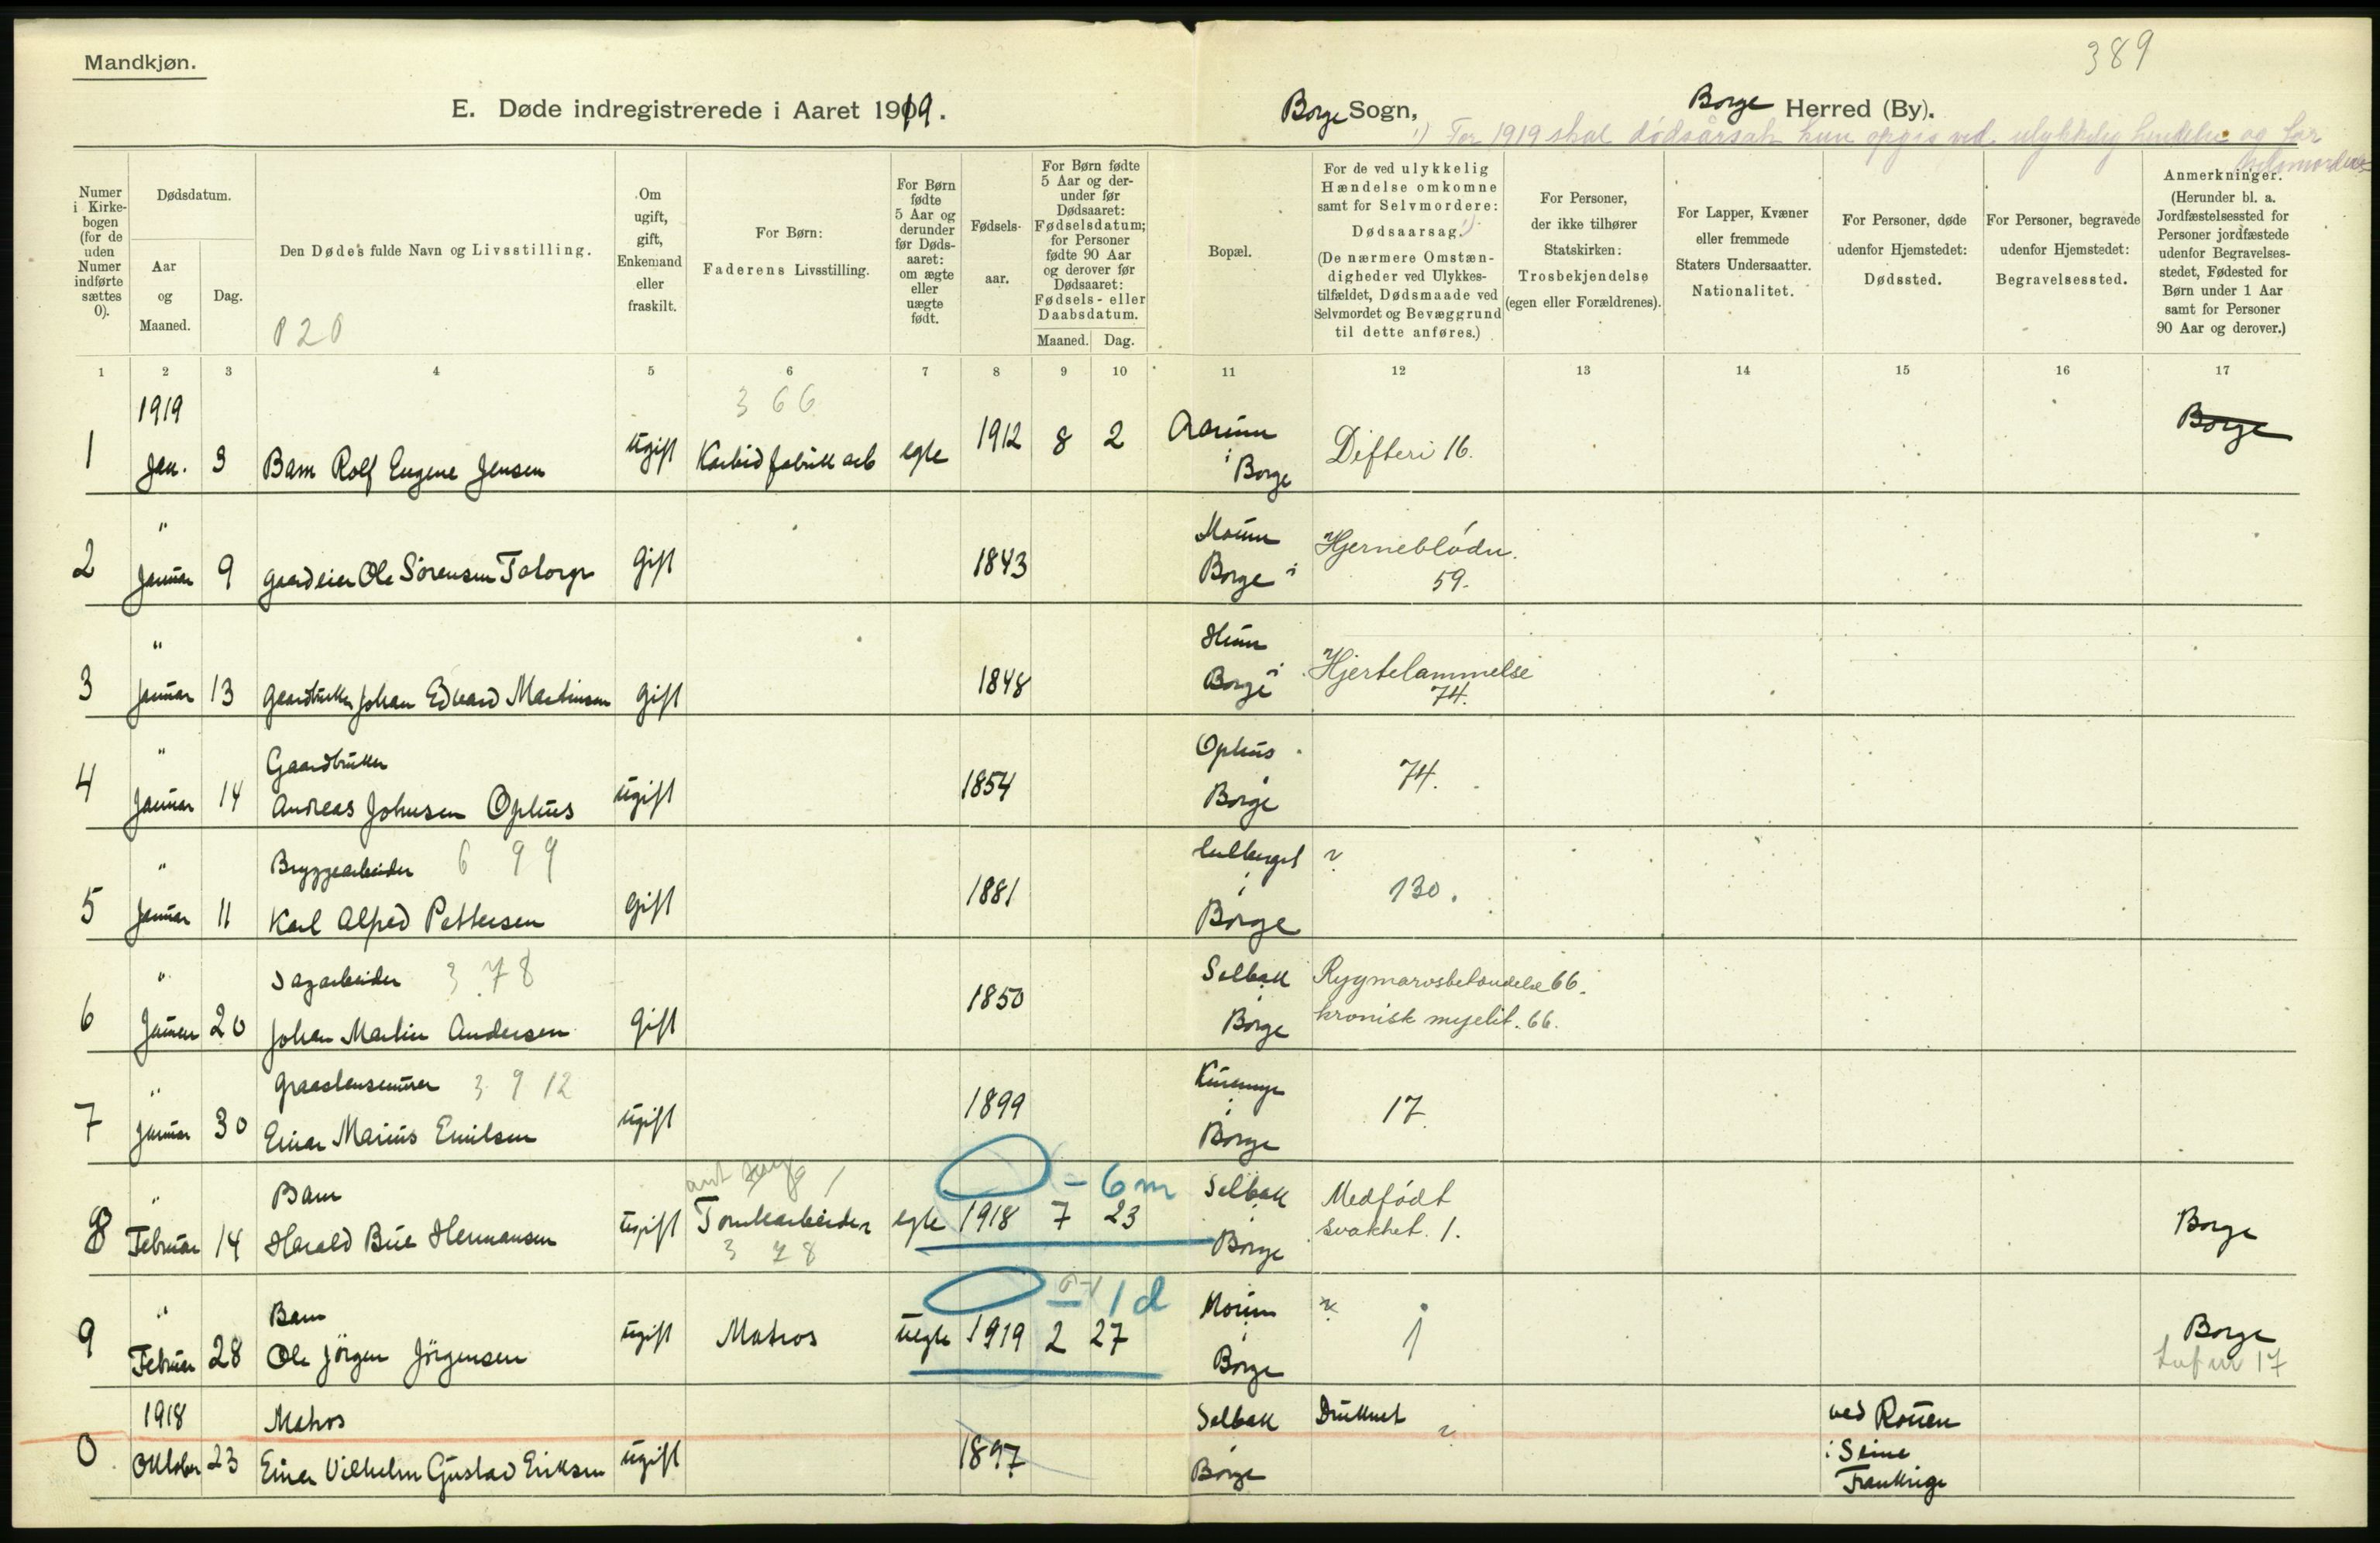 389
Mandkjøn.
E. Døde indregistrerede i Aaret 1919.
Borge Sogn, Borge Herred (By).
1) For 1919 skal dødsårsak kun opgis ved ulykkelig hendelse og for selvmordere
Numer i Kirkebogen (for de uden Numer indførte sættes 0).
Dødsdatum.
Aar og Maaned.
Dag.
Den Døde's fulde Navn og Livsstilling.
020
Om ugift, gift, Enkemand eller fraskilt.
For Børn: Faderens Livsstilling.
For Børn fødte 5 Aar og derunder før Dødsaaret: om ægte eller uægte født.
Fødselsaar.
For Børn fødte 5 Aar og derunder før Dødsaaret: Fødselsdatum; for Personer fødte 90 Aar og derover før Dødsaaret: Fødsels- eller Daabsdatum.
Maaned. Dag.
Bopæl.
For de ved ulykkelig Hændelse omkomne samt for Selvmordere: Dødsaarsag. 1)
(De nærmere Omstændigheder ved Ulykkestilfældet, Dødsmaade ved Selvmordet og Bevæggrund til dette anføres.)
For Personer, der ikke tilhører Statskirken: Trosbekjendelse (egen eller Forældrenes).
For Lapper, Kvæner eller fremmede Staters Undersaatter. Nationalitet.
For Personer, døde udenfor Hjemstedet: Dødssted.
For Personer, begravede udenfor Hjemstedet: Begravelsessted.
Anmerkninger. (Herunder bl. a. Jordfæstelsessted for Personer jordfæstede udenfor Begravelsesstedet, Fødested for Børn under 1 Aar samt for Personer 90 Aar og derover.)
1 2 3 4 5 6 7 8 9 10 11 12 13 14 15 16 17
1919 366
1 Jan. 3 Barn Rolf Eugene Jensen ugift Karbidfabrik arb egte 1912 8 2 i Borge Difteri 16. Borge
"
2 Januar 9 Gaardeier Ole Sørensen Taborg gift 1843 Moum i Borge Hjerneblødn. 59.
"
3 Januar 13 Gaardbruker Johan Edvard Martinsen gift 1848 Hunn i Borge Hjertelammelse 74.
" Gaardbruker
4 Januar 14 Andreas Johnsen Ophus ugift 1854 Ophus i Borge 74.
" Bryggearbeider 6 99
5 Januar 11 Karl Alfred Pettersen gift 1881 i Borge 130.
" Sagarbeider 3 78
6 Januar 20 Johan Martin Andersen gift 1850 Selbak i Borge Rygmarvsbetændelse 66.
kronisk myelit. 66.
" Graastensmurer 3 9 12
7 Januar 30 Einar Marius Emilsen ugift 1899 i Borge 17
" Barn - 6 m
8 Februar 14 Harald Bue Hermansen ugift Tomtearbeider egte 1918 7 23 Selbak i Borge Medfødt svakhet. 1. Borge
3 78
" Barn 1 d
9 Februar 28 Ole Jørgen Jørgensen ugift Matros uegte 1919 2 27 Moum i Borge 1 Borge
17
1918 Matros
0 Oktober 23 Einar Vilhelm Gustav Eriksen ugift 1897 Selbak i Borge Druknet ved Rouen
i Seine
Frankrige